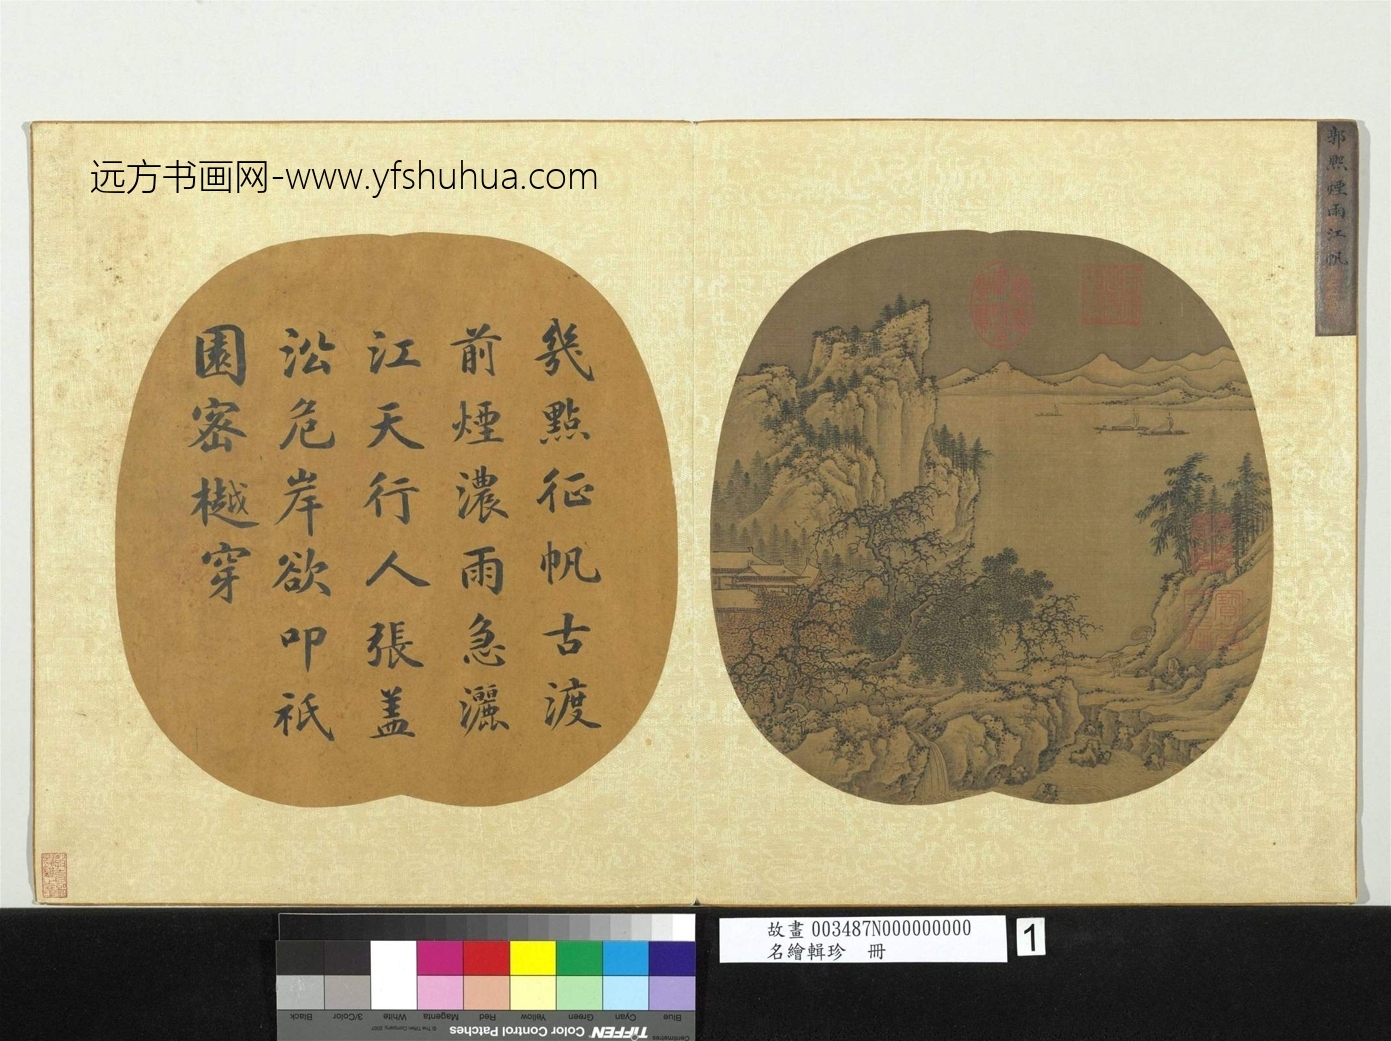 远方书画网-www.yfshuhua.com
郭熙煙雨江帆
幾點征帆古渡
前煙濃雨急灑
江天行人張盖
沿危岸欲叩祇
園密樾穿
故畫 003487N000000000
名繪輯珍 冊
1
Black
3/Color
White
Magenta
Red
Yellow
Green
Cyan
Blue
TIFFEN Color Control Patches
© The Tiffen Company, 2007
Centimetres